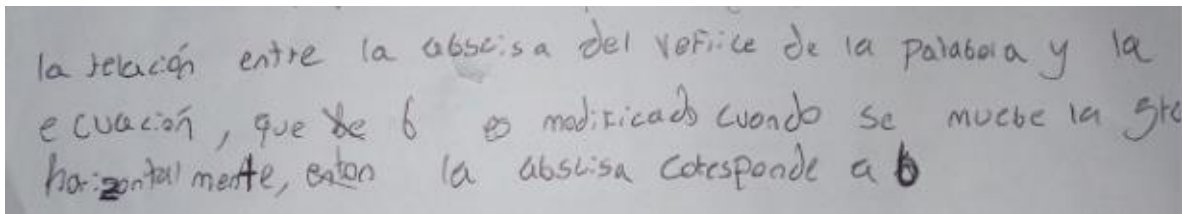 la relación entre la abscisa del vertice de la palabola y la
ecuación, que b es modificado cuando se muebe la gra
horizontalmente, enton la abscisa coresponde a b